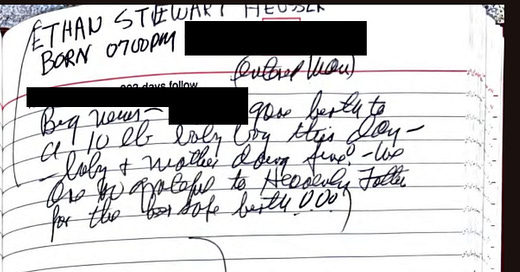 ETHAN STEWART HEUSSER
BORN 0700PM
(Entered Mon)
days follow
Big news— gave birth to
a 10 lb baby boy this day—
—baby & mother doing fine! —We
are so grateful to Heavenly Father
for the safe birth!